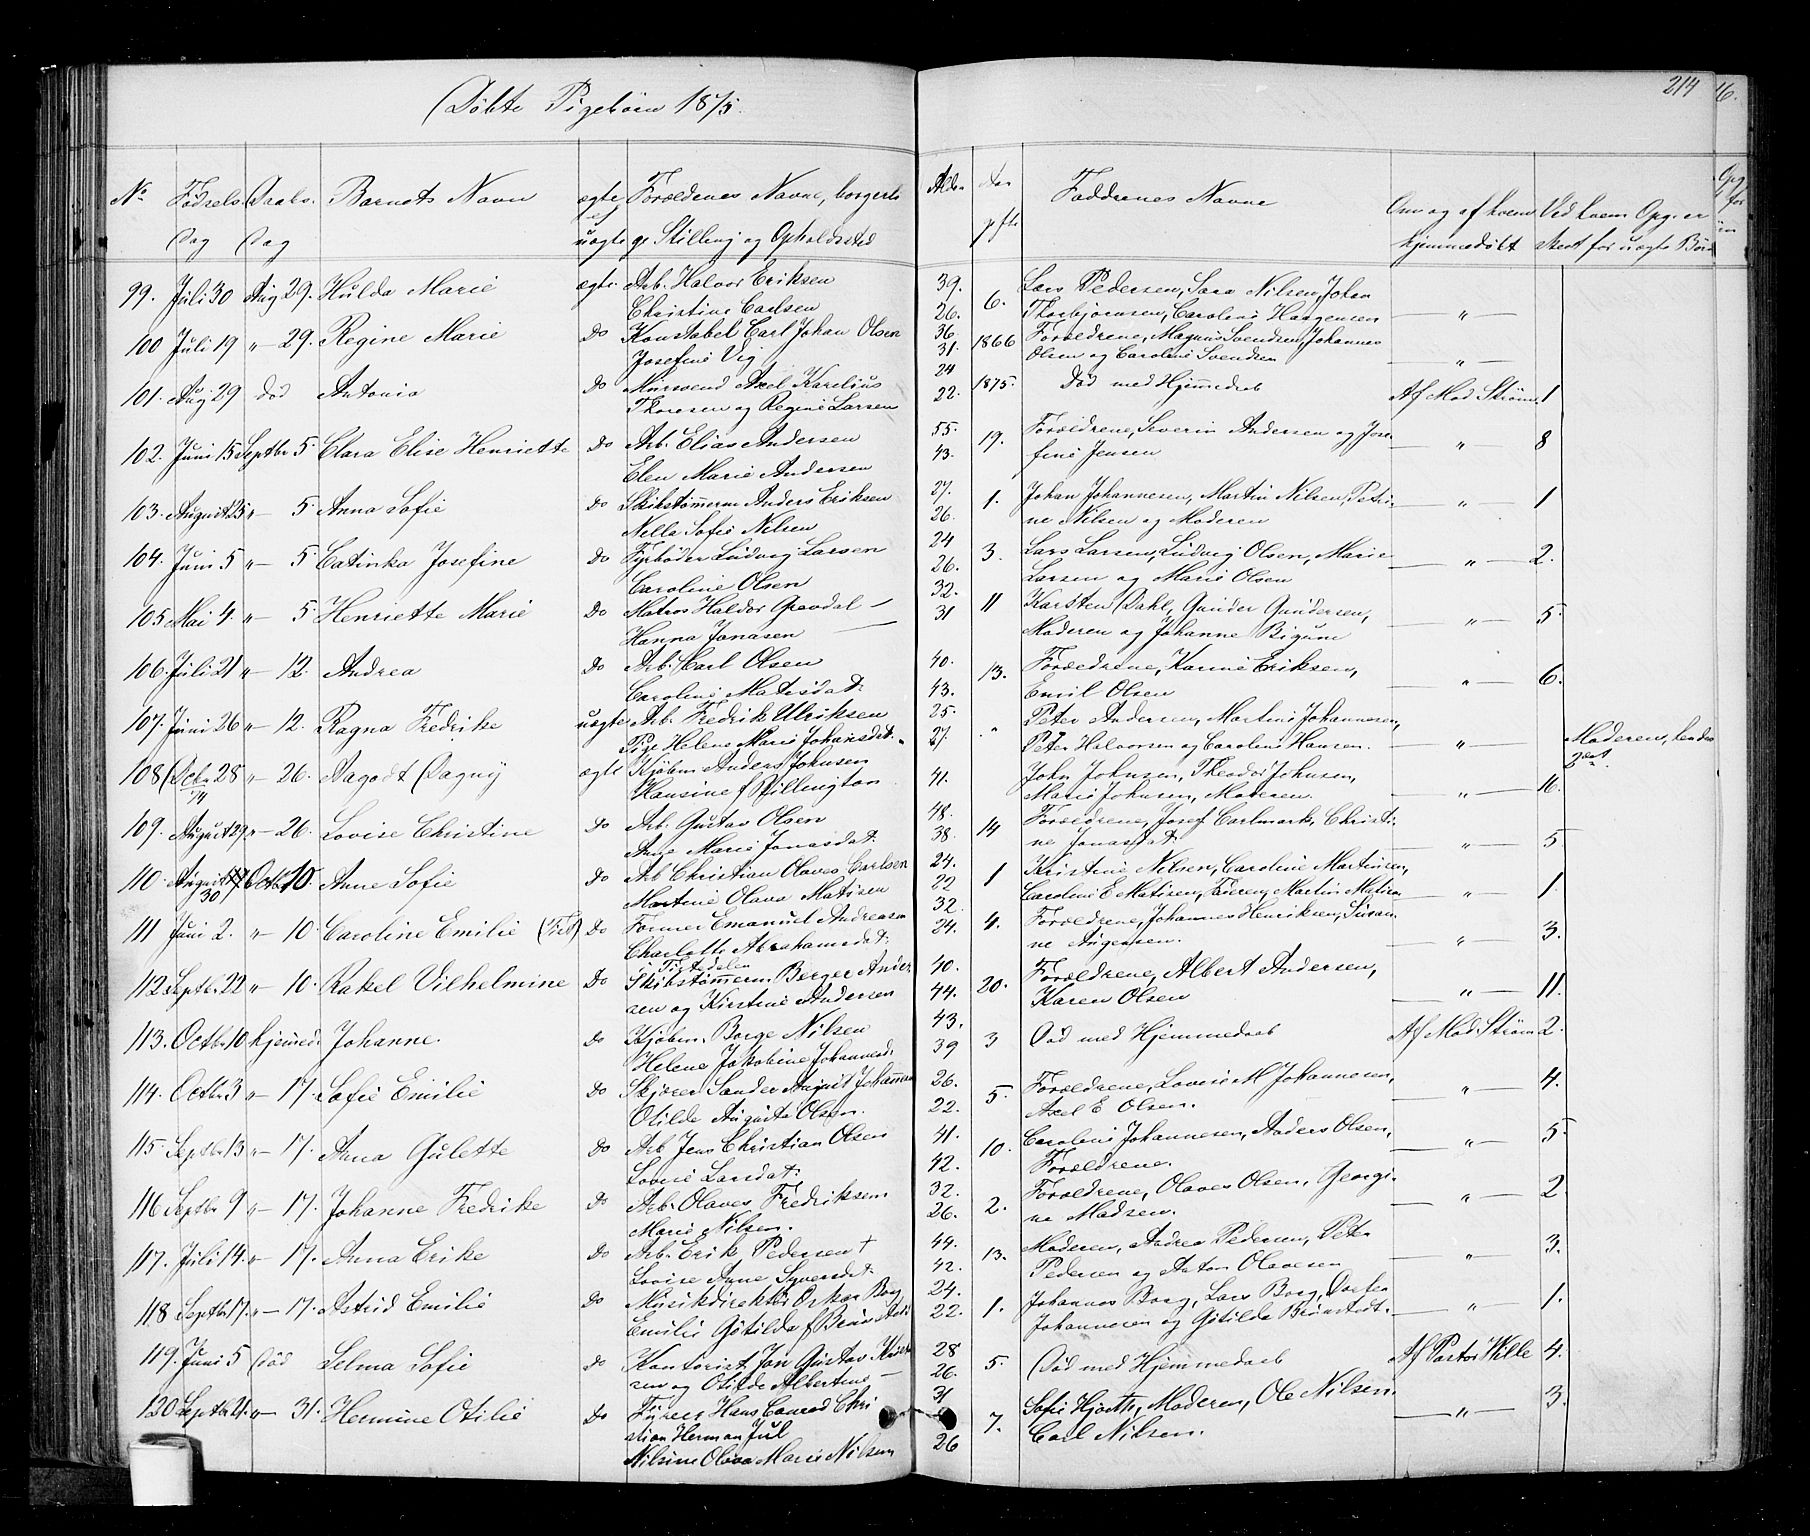 Døbte Pigebørn 1875.
214
16.
No Fødsels Daabs. Barnets Navn ægte Forældrenes Navne, borgerli Alder Aar Faddrenes Navne Om og af hvem Ved hvem Opg. er
Dag Dag uægte ge Stilling og Opholdssted gifte hjemmedøbt skeet for uægte Børn
99. Juli 30 Aug 29. Hulda Marie ægte Arb. Halvor Eriksen 39. 6. Lars Pedersen, Sara Nilsen, Johan
Christine Carlsen 26. Thorbjørnsen, Caroline Haagensen — " —
100 Juli 19 " 29. Regine Marie Do Konstabel Carl Johan Olsen 36 1866 Forældrene, Magnus Svendsen, Johannes
Josefine Vig 31. Olsen og Caroline Svendsen — " —
101. Aug 29 død Antonia Do Mursvend Axel Karelius 24 1875. Død med Hjemmedaab Af Mad Strøm 1
Thoresen og Regine Larsen 22.
102. Juni 15 Septbr 5. Clara Elise Henriette Do Arb. Elias Andersen 55. 19. Forældrene, Severin Andersen og Jose
Elen Marie Andersen 43. fine Jensen — " — 8
103. August 25 " 5 Anna Sofie Do Skibstømmerm Anders Eriksen 27. 1. Johan Johannesen, Martin Nilsen, Petri-
Nella Sofie Nelsen 26. ne Nilsen og Moderen — " — 1
104. Juni 5 " 5 Catinka Josefine Do Fyrbøder Ludvig Larsen 24 3. Lars Larsen, Ludvig Olsen, Marie
Caroline Olsen 26. Larsen og Marie Olsen — " — 2.
105 Mai 4. " 5 Henriette Marie Do Matros Haldor Grevdal — 32. 11 Karsten Dahl, Gunder Gundersen,
Hanna Jonasen — 31 Moderen og Johanne Bigum — " — 5.
106. Juli 21 " 12. Andrea Do Arb. Carl Olsen 40. 13. Forældrene, Karine Eriksen,
Caroline Matisdat: 43. Emil Olsen " — 6.
107. Juni 26 " 12. Ragna Fredrike uægte Arb. Fredrik Ulriksen 25. " Peter Andersen, Martine Johannesen,
Pige Helene Marie Johansdat. 27. Peter Halvorsen og Caroline Hansen. — " — Moderen,
108 Octbr 28 " 26. Aagodt Dagny ægte Kjøbm Anders Johnsen 41. John Johnsen, Theodor Johnsen,
74 Hansine f Pillington Marie Johnsen, Moderen. — " — 16.
109. August 29. " 26. Lovise Christine Do Arb. Gustav Olsen 48. 14 Forældrene, Josef Carlmark, Christi-
Ane Marie Jonasdat: 38. ne Jonasdat: — " — 5
110. August 30 Octbr 10. Anne Sofie Do Arb Christian Olaves Carlsen 24. 1 Kristine Nilsen, Caroline Martinsen,
Martine Olava Matisen 22 Caroline E Matisen, Faderen, Martin Matisen — " — 1.
111 Juni 2. " 10. Caroline Emilie Do Former Emanuel Andreasen 32. 4. Forældrene, Johannes Henriksen, Susan-
Charlotte Abrahamsdat: 24. ne — " — 3.
Tistedalen
112. Septbr 22 " 10. Rakel Vilhelmine Do Skibstømmerm Berger Ander 40. 20. Forældrene, Albert Andersen,
sen og Kirstine Andersen 44. Karen Olsen — " — 11.
113. Octbr 10 hjemmed. Johanne. Do Kjøbm. Borge Nilsen 43. 3 Død med Hjemmedaab Af Mad. Strøm 2.
Helene Jakobine Johannesd: 39
114. Octbr 3 " 17. Sofie Emilie Do Skjører Sander August Johannsen 26. 5. Forældrene, Lovise M Johannesen,
Otilde Auguste Olsen. 22. Axel E Olsen. — " — 4.
115. Septbr 13 " 17. Anna Gulette Do Arb Jens Christian Olsen 41. 10. Caroline Johannesen, Anders Olsen,
Lovise Larsdat: 42. Forældrene. — " — 5
116 Septbr 9 " 17. Johanne Fredrike Do Arb. Olaves Fredriksen 32. 2. Forældrene, Olaves Olsen, Georgi-
Marie Nilsen. 26. ne Madsen. — " — 2
117. Juli 14. " 17. Anna Erike Do Arb. Erik Pedersen † 44. 13. Moderen, Andrea Pedersen, Peter
Lovise Anne Syversdat: 42. Pedersen og Anton Olavesen — " — 3.
118 Septbr 17. " 17. Astrid Emilie Do Musikdirektør Oskar Borg 24. 1. Johannes Borg, Lars Borg, Dortea
Emilie Gotilda f 22. Johannesen og Gotilda Brønstedt. — " — 1.
119. Juni 5 Død Selma Sofie Do Kontorist Jon Gustav 28 5. Død med Hjemmedaab Af Pastor Wille 4.
sen og Otilde Albertine — 26.
120 Septbr 21. " 31. Hermine Otilie Do Fyrer Hans Conrad Chri 31 7. Sofie Hjorth, Moderen, Ole Nilsen
stian Herman Jul Carl Nilsen. — " — 3.
Nilsine Olava Marie Nilsen 26